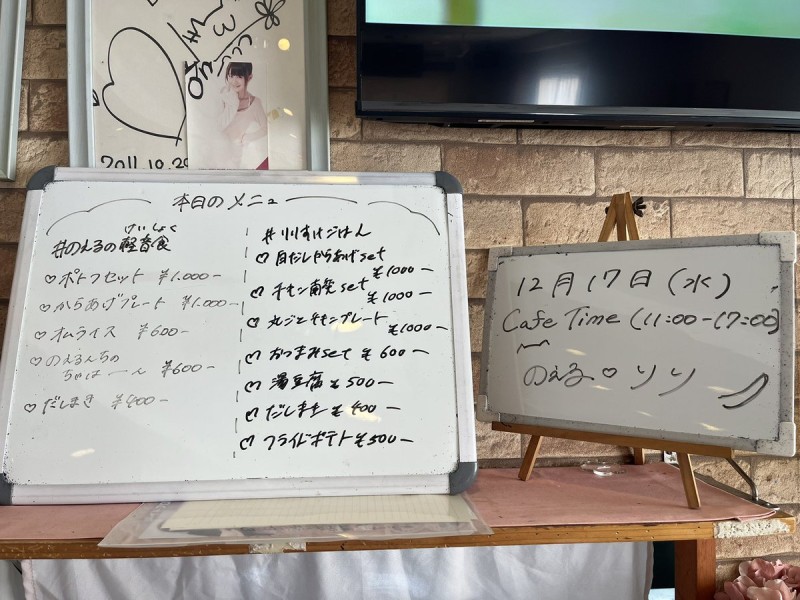 2011.10.29
本日のメニュー
#のえるの軽音食
けいしょく
♡ ポトフセット ¥1.000-
♡ からあげプレート ¥1.000-
♡ オムライス ¥600-
♡ のえるんちの
ちゃはーーん ¥600-
♡ だしまき ¥400-
#りりすけごはん
♡ 白だしからあげset
¥1000-
♡ チキン南蛮set
¥1000-
♡ 丸ごとチキンプレート
¥1000-
♡ おつまみset ¥600-
♡ 湯豆腐 ¥500-
♡ だしまき ¥400-
♡ フライドポテト ¥500-
12月17日(水)
Cafe Time (11:00-17:00)
のえる♡りり